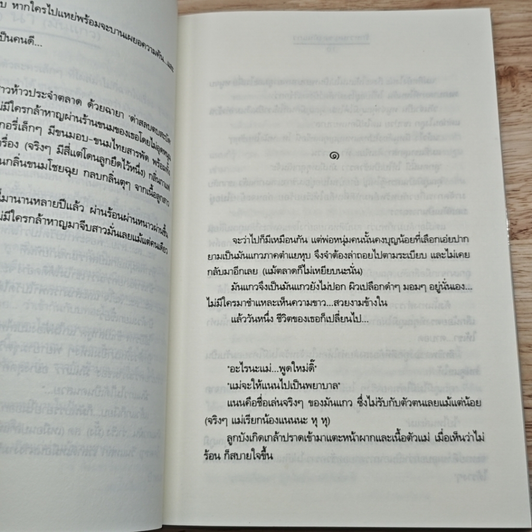 บ หากใครไปแหย่พร้อมจะบานเผยอความคัน...และ
เป็นคนดี...
าวห้าวประจำตลาด ด้วยฉายา
มีใครกล้าหาญผ่านร้านขนมของเธอโดยไม่
กอรี่เล็กๆ มีขนมอบ-ขนมไทยสารพัด พร้อม
รื่อง (จริงๆ มีสี่แต่โดนลูกยืดไว้หนึ่ง)
นกลิ่นขนมโชยฉุย กลบกลิ่นตุๆ จาก
มานานหลายปีแล้ว ผ่านร้อนผ่านหนาว
มมีใครกล้าหาญมาจีบสาวมั่นเลยแม้แต่คนเดียว
๑
จะว่าไปก็มีเหมือนกัน แต่พ่อหนุ่มคนนั้นคงบุญน้อยที่เลือกเอ่ยปาก
ยามเป็นมันแกวภาคตำแยหุบ จึงจำต้องล่าถอยไปตามระเบียบ และไม่เคย
กลับมาอีกเลย (แม้ตลาดก็ไม่เหยียบนะนั่น)
มันแกวจึงเป็นมันแกวยังไม่ปอก ผิวเปลือกดำๆ มอมๆ อยู่นั่นเอง...
ไม่มีใครมาชำแหละเห็นความขาว...สวยงามข้างใน
แล้ววันหนึ่ง ชีวิตของเธอก็เปลี่ยนไป...
'อะไรนะแม่...พูดใหม่ดิ๊'
'แม่จะให้แนนไปเป็นพยาบาล'
แนนคือชื่อเล่นจริงๆ ของมันแกว ซึ่งไม่รับกับตัวตนเลยแม้แต่น้อย
(จริงๆ แม่เรียกน้องแนนนะ หุ หุ)
ลูกบังเกิดเกล้าปราดเข้ามาแตะหน้าผากและเนื้อตัวแม่ เมื่อเห็นว่าไม่
ร้อน ก็สบายใจขึ้น